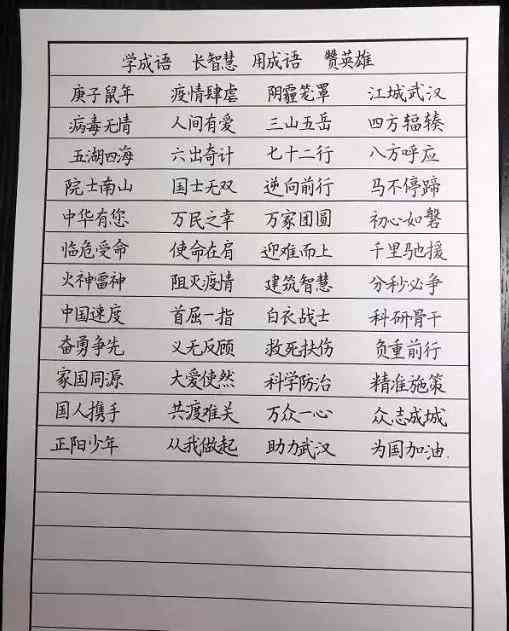 学成语 长智慧 用成语 赞英雄
庚子鼠年 疫情肆虐 阴霾笼罩 江城武汉
病毒无情 人间有爱 三山五岳 四方辐辏
五湖四海 六出奇计 七十二行 八方呼应
院士南山 国士无双 逆向前行 马不停蹄
中华有您 万民之幸 万家团圆 初心如磐
临危受命 使命在肩 迎难而上 千里驰援
火神雷神 阻灭疫情 建筑智慧 分秒必争
中国速度 首屈一指 白衣战士 科研骨干
奋勇争先 义无反顾 救死扶伤 负重前行
家国同源 大爱使然 科学防治 精准施策
国人携手 共疫难关 万众一心 众志成城
正阳少年 从我做起 助力武汉 为国加油.